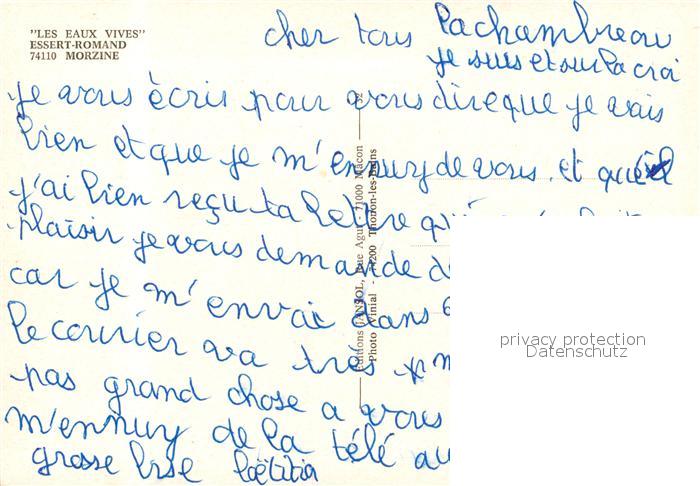 "LES EAUX VIVES"
ESSERT-ROMAND
74110 MORZINE
cher tous
la chambre ou
je suis et sur la croi
je vous ècris pour vous dire que je vais
bien et que je m'ennuy de vous. et que
j'ai bien reçu ta lettre
plaisir je vous demande
car je m'envai dans
le courier va très
pas grand chose a vous
m'ennuy de la télé au
grosse bise laëtitia
Editions GANSOL, Rue Agut 71000 Macon 52
Photo Vinial - 74200 Thonon-les-Bains
privacy protection
Datenschutz